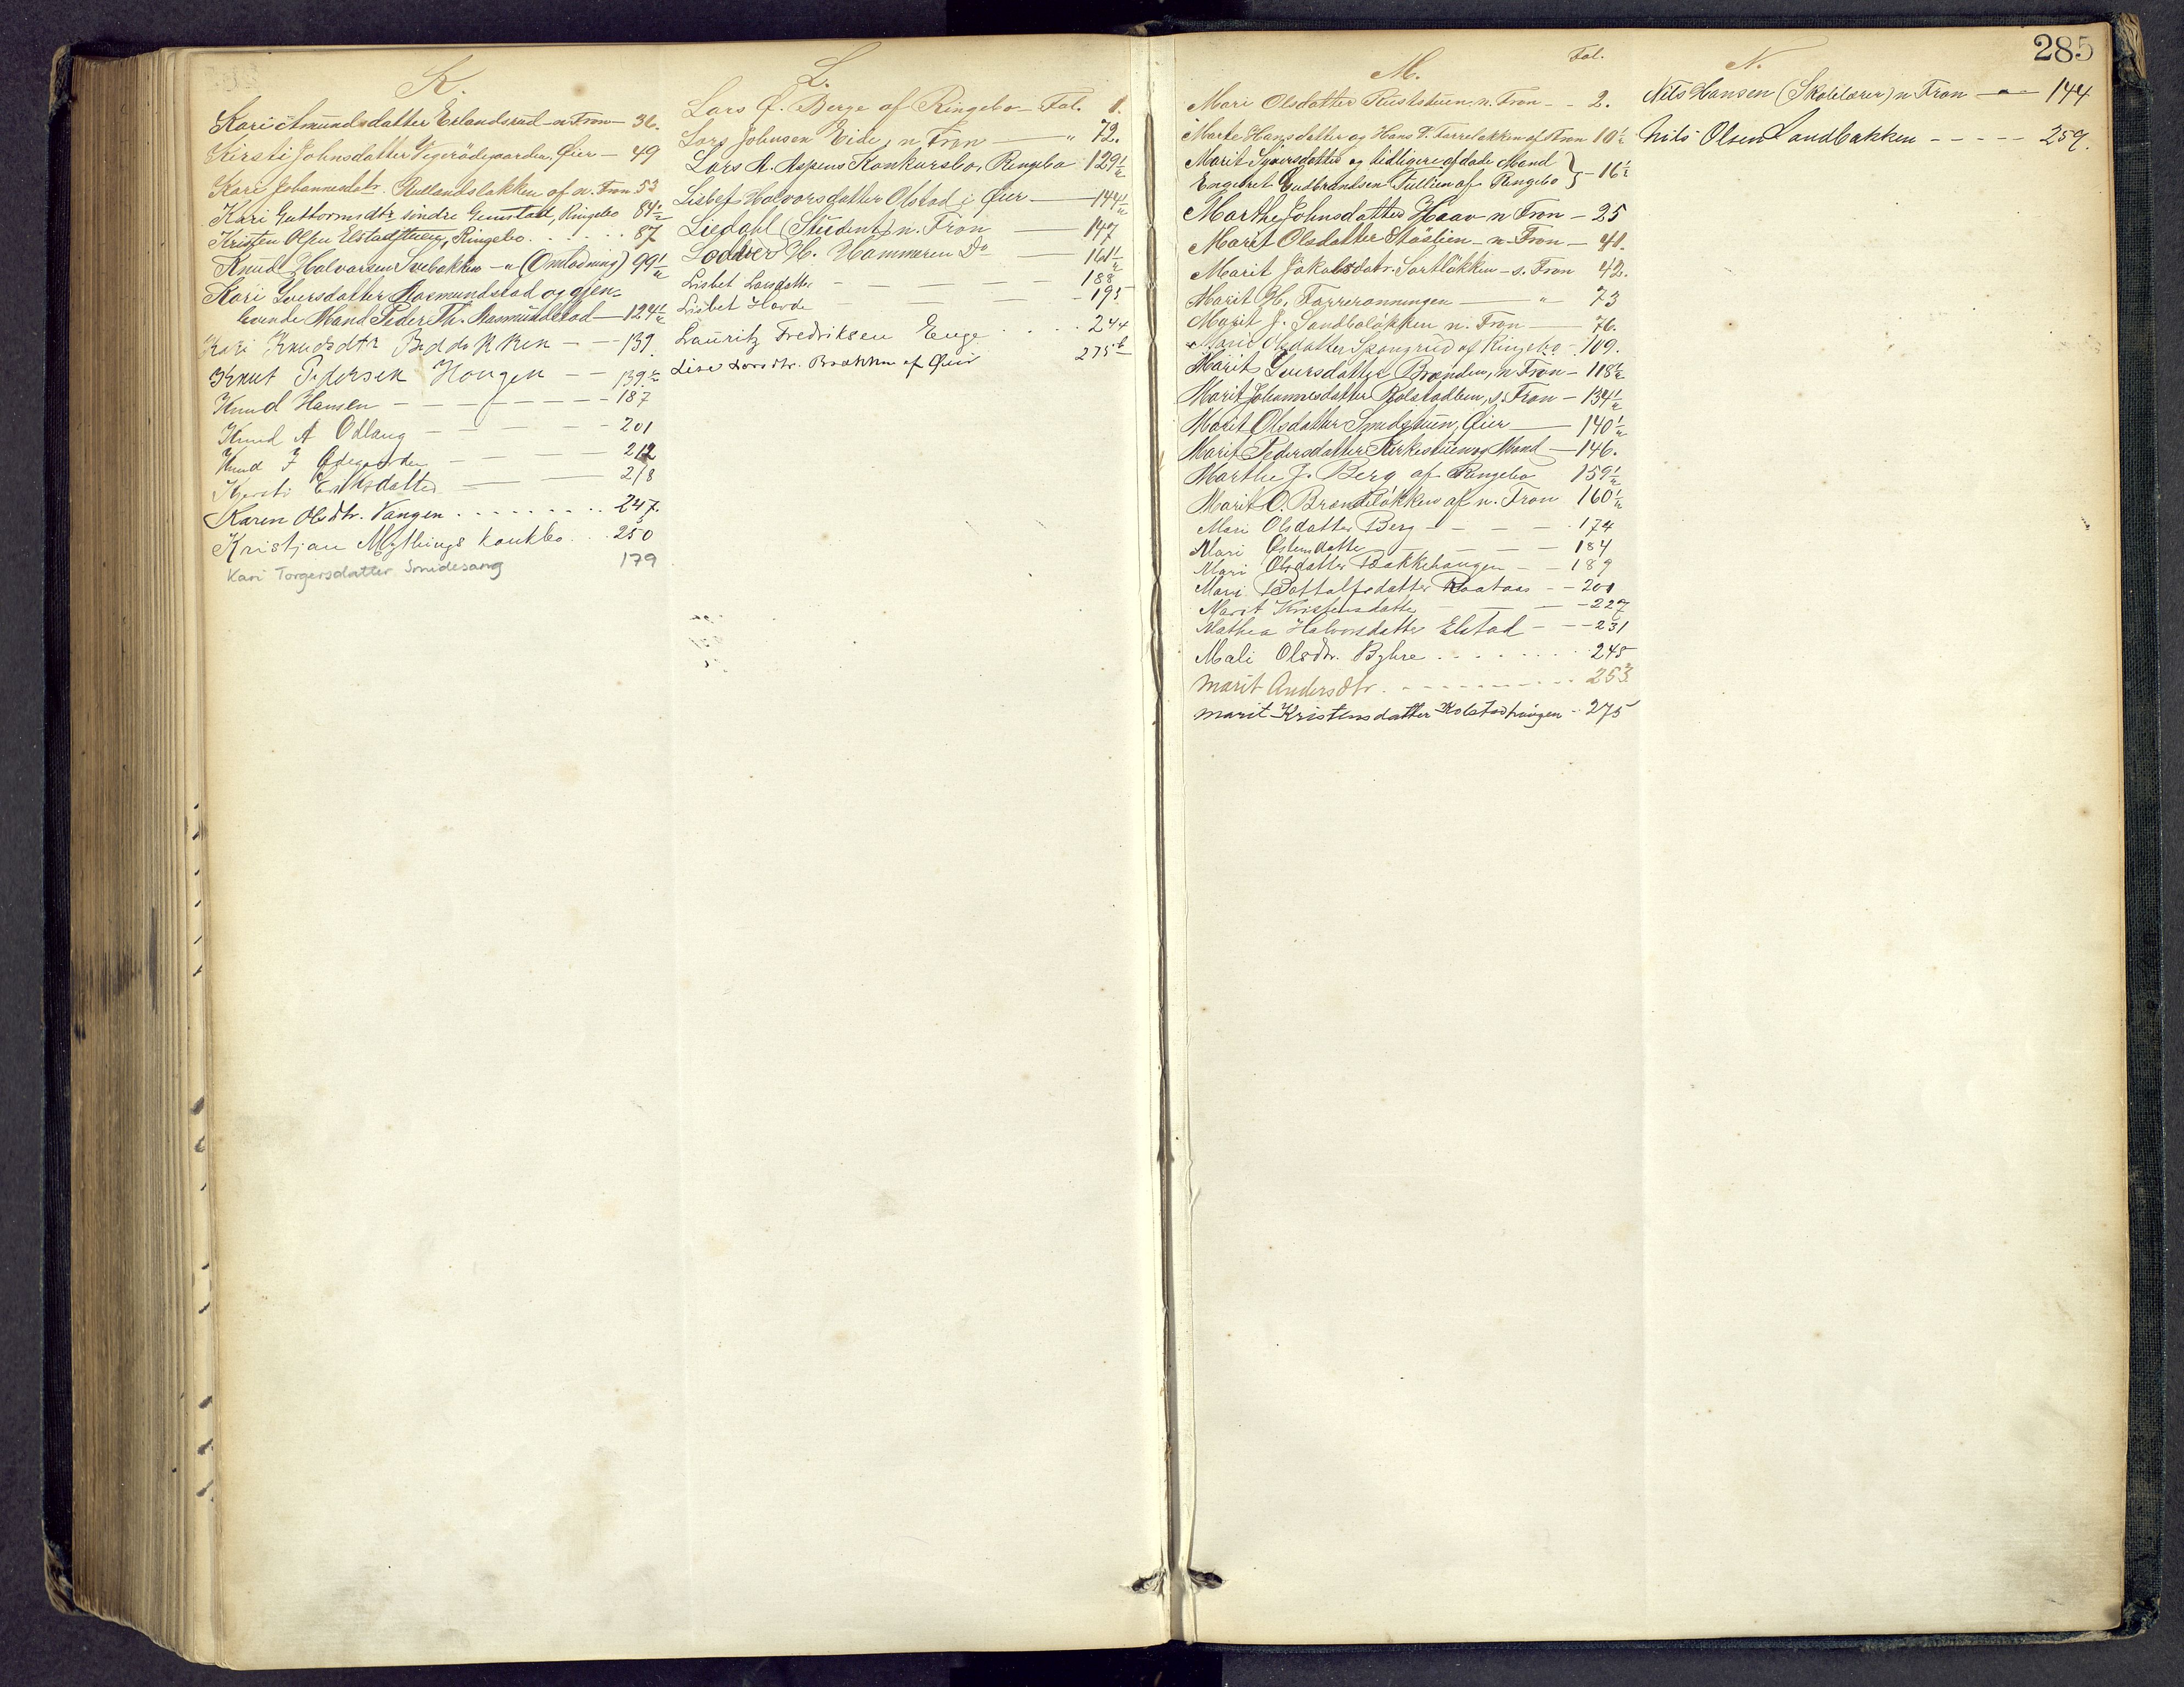 K.
Kari Amundsdatter Erlandsrud n. Fron — 36.
Kirsti Johnsdatter Øier — 49
Kari Johannesdatr. Rullandsløkken af n. Fron 53
Kari Guttormsdtr Ringebo 84½
Kristen Olsen Elstadstuen, Ringebo . . . . . . 87
Knud Halvorsen Svebakken — " (Omlodning) 99½
Kari Iversdatter Rasmundstad og gjen-
levende Mand Peder Th. Rasmundstad — 124½
Kari Knudsdtr — — 139.
Knut Pedersen Hougen — — 139½
Knud Hansen — — — — — — — 187
Knud A Odlaug — — — — — 201
Knud J Ødegaarden — — — 212
Kjersti Eriksdatter — — — 218
Karen Olsdtr. Vangen . . . . . . . . . 247.
Kristjan Mythings konkbo. . . 250
Kari Torgersdatter Smidesang 179
L.
Lars Berge af Ringebo Fol. 1.
Lars Johnsen Eide, n. Fron — " 72.
Lars A. Aspens Konkursbo, Ringebo 129½
Lisbet Halvorsdatter Olstad i Øier — 144½
Liedahl (Student) n. Fron — 147
Lodver H. Hammeren Do — 161½
Lisbet Larsdatter — — — — 188
Lisbet Harde - 195
Lauritz Fredriksen Enge . . . . . 244
Lise Larsdtr. Brækken af Øier 275b
285
M. Fol.
Mari Olsdatter Ruststuen, n. Fron - - 2.
Marte Hansdatter og Hans P. Farreløkken af Fron 10½
Marit Syversdatter og tidligere afdøde Mand
Engebret Gudbrandsen Tullien af Ringebo } - 16½
Marthe Johnsdatter Haav n Fron — 25
Marit Olsdatter Støslien - n. Fron — 41.
Marit Jakobsdatr. Sortløkken - s. Fron 42.
Marit H. Farrerønningen — " — 73
Marit J. Sandboløkken n. Fron — 76.
Mari Olsdatter Spangrud af Ringebo - 109.
Marit Iversdatter Brænden, n. Fron — 118½
Marit Johannesdatter Kolstadlien, s. Fron — 134½
Marit Olsdatter Smedstuen, Øier — 140½
Marit Pedersdatter Kirkestuen og Mand — 146.
Marthe J. Berg af Ringebo 159½
Marit O. Brændløkken af n. Fron 160½
Mari Olsdatter Berg — — — — . 174
Mari Østensdatter — — — — 184
Mari Olsdatter Bakkehaugen — — 189
Mari Bottolfsdatter Raataas — — 201
Marit Kristensdatter — — — — 227
Mathea Halvorsdatter Elstad — — — 231
Mali Olsdtr. Byhre . . . . . . . . 245
Marit Andersdtr. - - - - - - - - - - 253
Marit Kristensdatter Kolstadhaugen - - 275
N.
Nils Hansen (Skolelærer) n Fron — " — 144
Nils Olsen Sandbakken - - - - - 259.